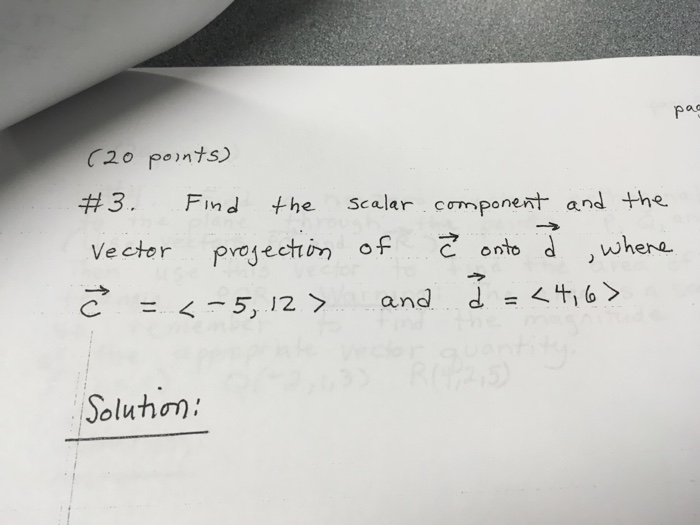 pag
(20 points)
#3. Find the scalar component and the
vector projection of c⃗ onto d⃗, where
c⃗ = < -5, 12 > and d⃗ = <4, 6>
Q(-2,1,3) R(4,2,5)
Solution: